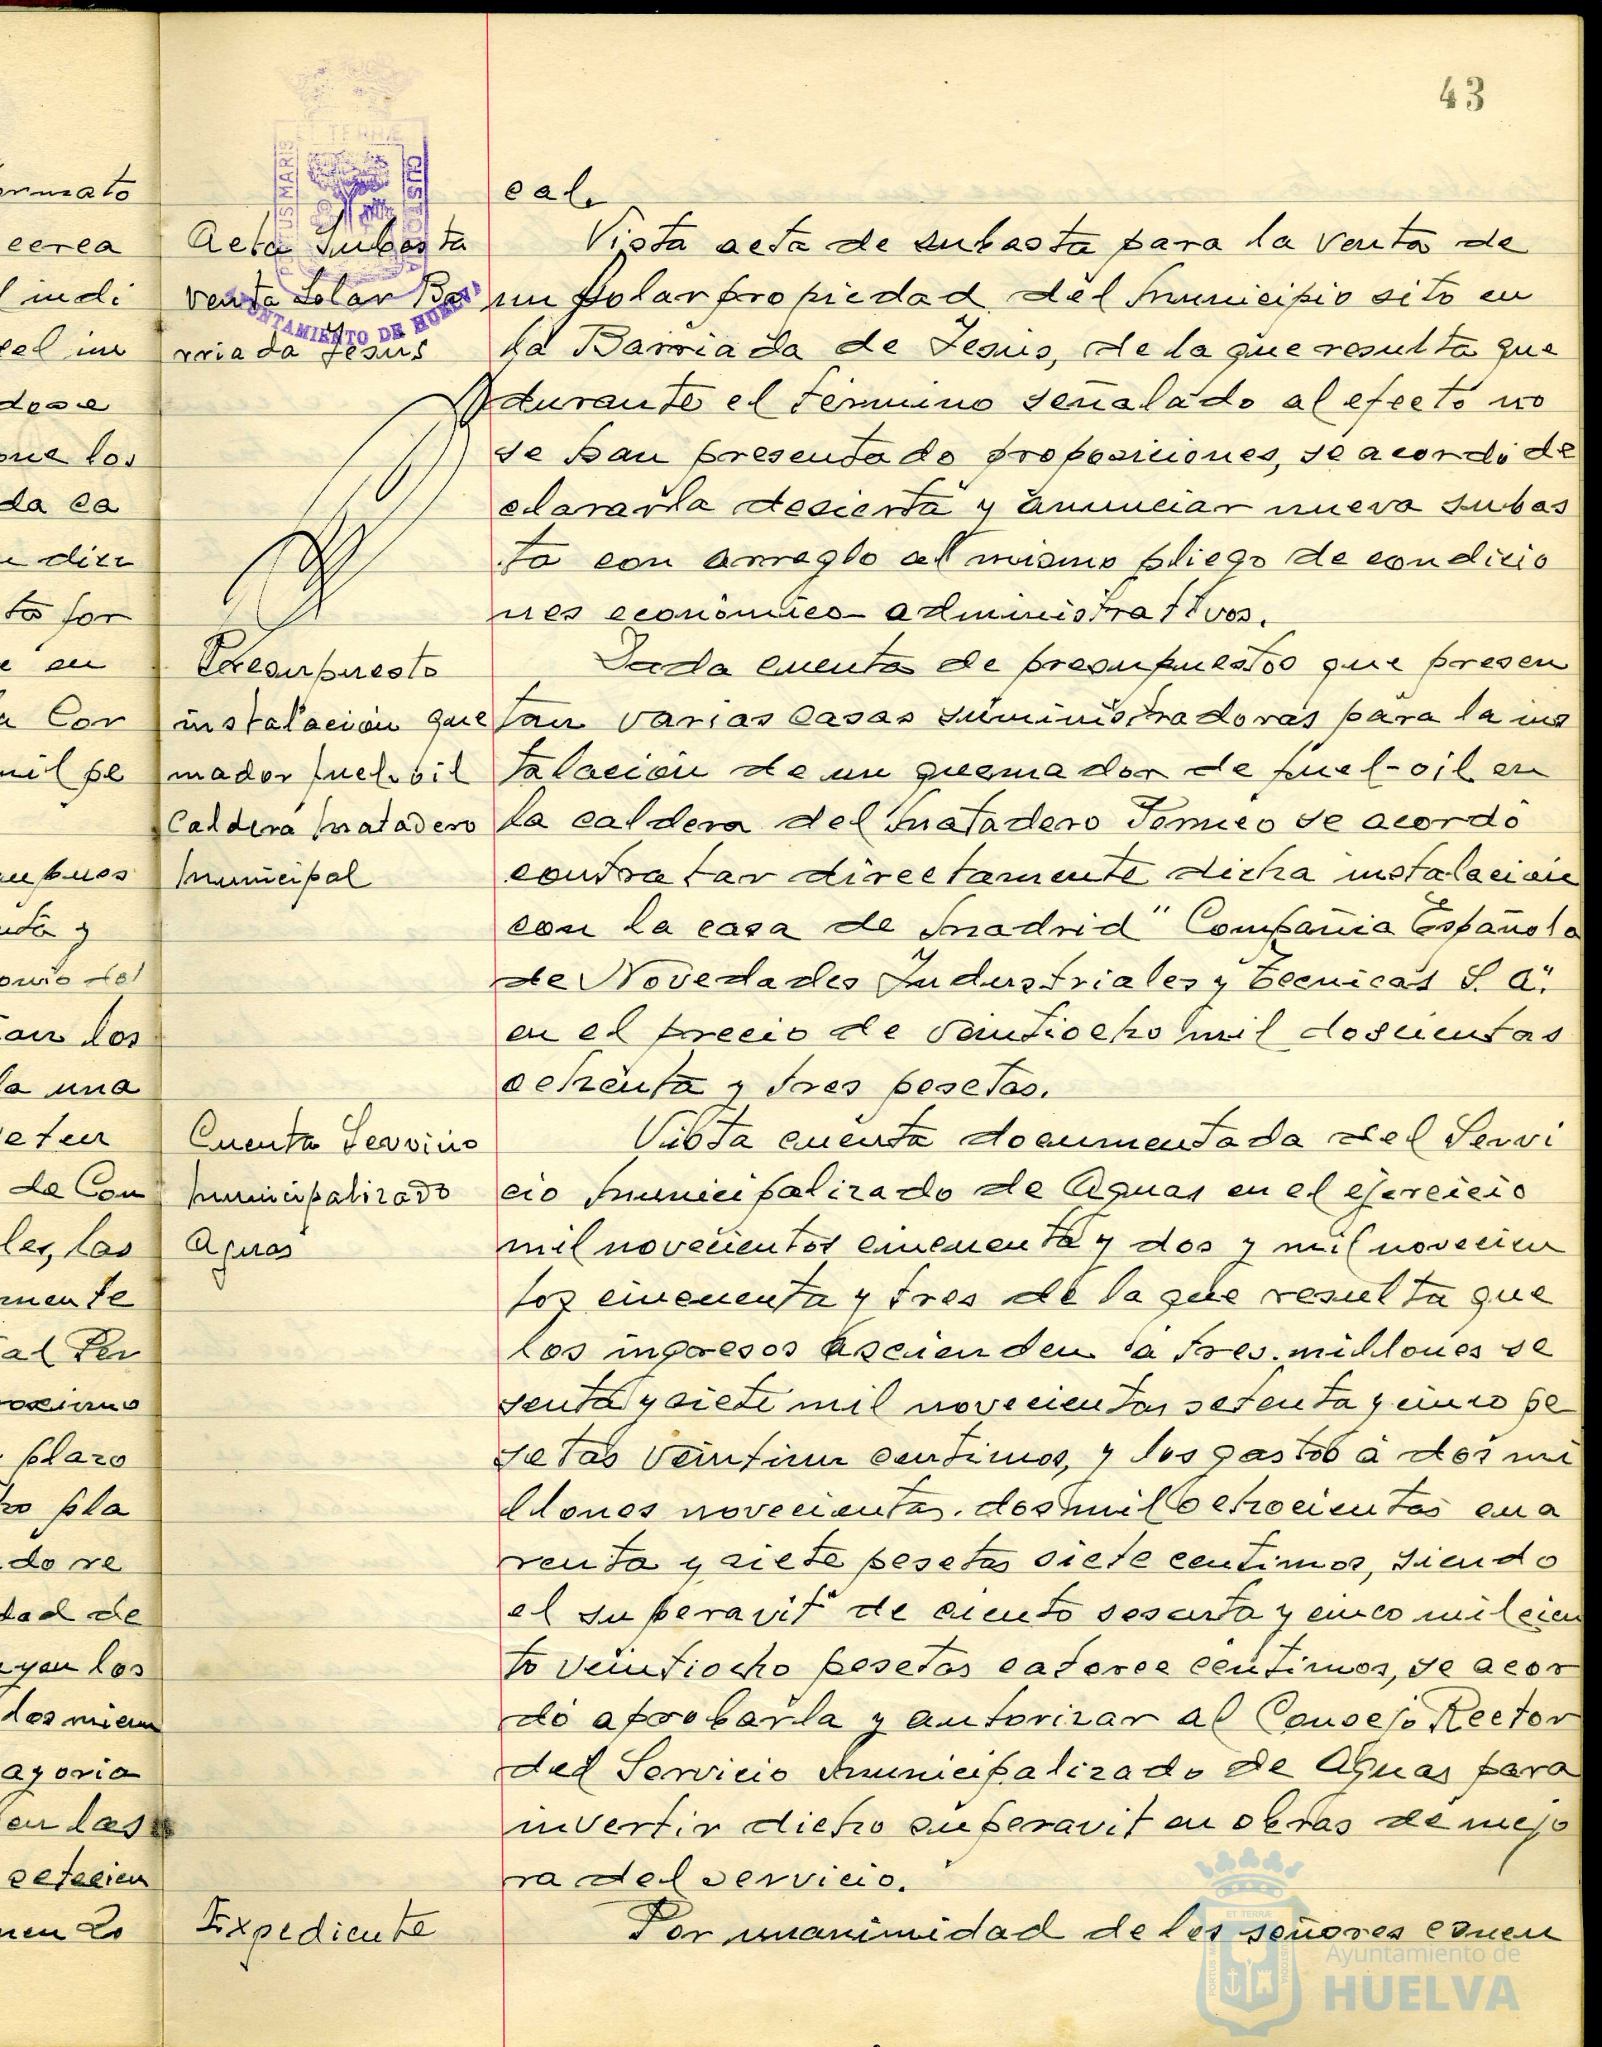 43
cal.
Acta Subasta
venta Solar Ba
y
rriada Jesus
Vista acta de subasta para la venta de
un solar propiedad del Municipio sito en
la Barriada de Jesus, de la que resulta que
durante el término señalado al efecto no
se han presentado proposiciones, se acordó de
clararla desierta y anunciar nueva subas
ta con arreglo al mismo pliego de condicio
nes económico-administrativos.
Presupuesto
instalación que
mador fuel-oil
Caldera Matadero
Municipal
Dada cuenta de presupuestos que presen
tan varias casas suministradoras para la ins
talación de un quemador de fuel-oil en
la caldera del Matadero se acordó
contratar directamente dicha instalación
con la casa de Madrid "Compañia Española
de Novedades Industriales y Tecnicas S. A."
en el precio de veintiocho mil doscientas
ochenta y tres pesetas.
Cuenta Servicio
Municipalizado
Aguas
Vista cuenta documentada del Servi
cio Municipalizado de Aguas en el ejercicio
mil novecientos cincuenta y dos y mil novecien
tos cincuenta y tres de la que resulta que
los ingresos ascienden a tres millones se
senta y siete mil novecientas setenta y cinco pe
setas veintiun centimos, y los gastos a dos mi
llones novecientas dos mil ochocientas cua
renta y siete pesetas siete centimos, siendo
el superavit de ciento sesenta y cinco mil cien
to veintiocho pesetas catorce céntimos, se acor
dó aprobarla y autorizar al Consejo Rector
del Servicio Municipalizado de Aguas para
invertir dicho superavit en obras de mejo
ra del servicio.
Expediente
Por unanimidad de los señores concu
ormato
cerea
l indi
el in
dose
que los
da ca
ta for
e en
a Cor
mil pe
upues
nta y
onio del
tan los
la una
de Con
les, las
mente
al Per
roximo
plazo
pla
do re
dad de
yen los
los miem
ayoria
en las
setecien
AYUNTAMIENTO DE HUELVA
PORTUS MARIS
ET TERRÆ
CUSTODIA
Ayuntamiento de
HUELVA